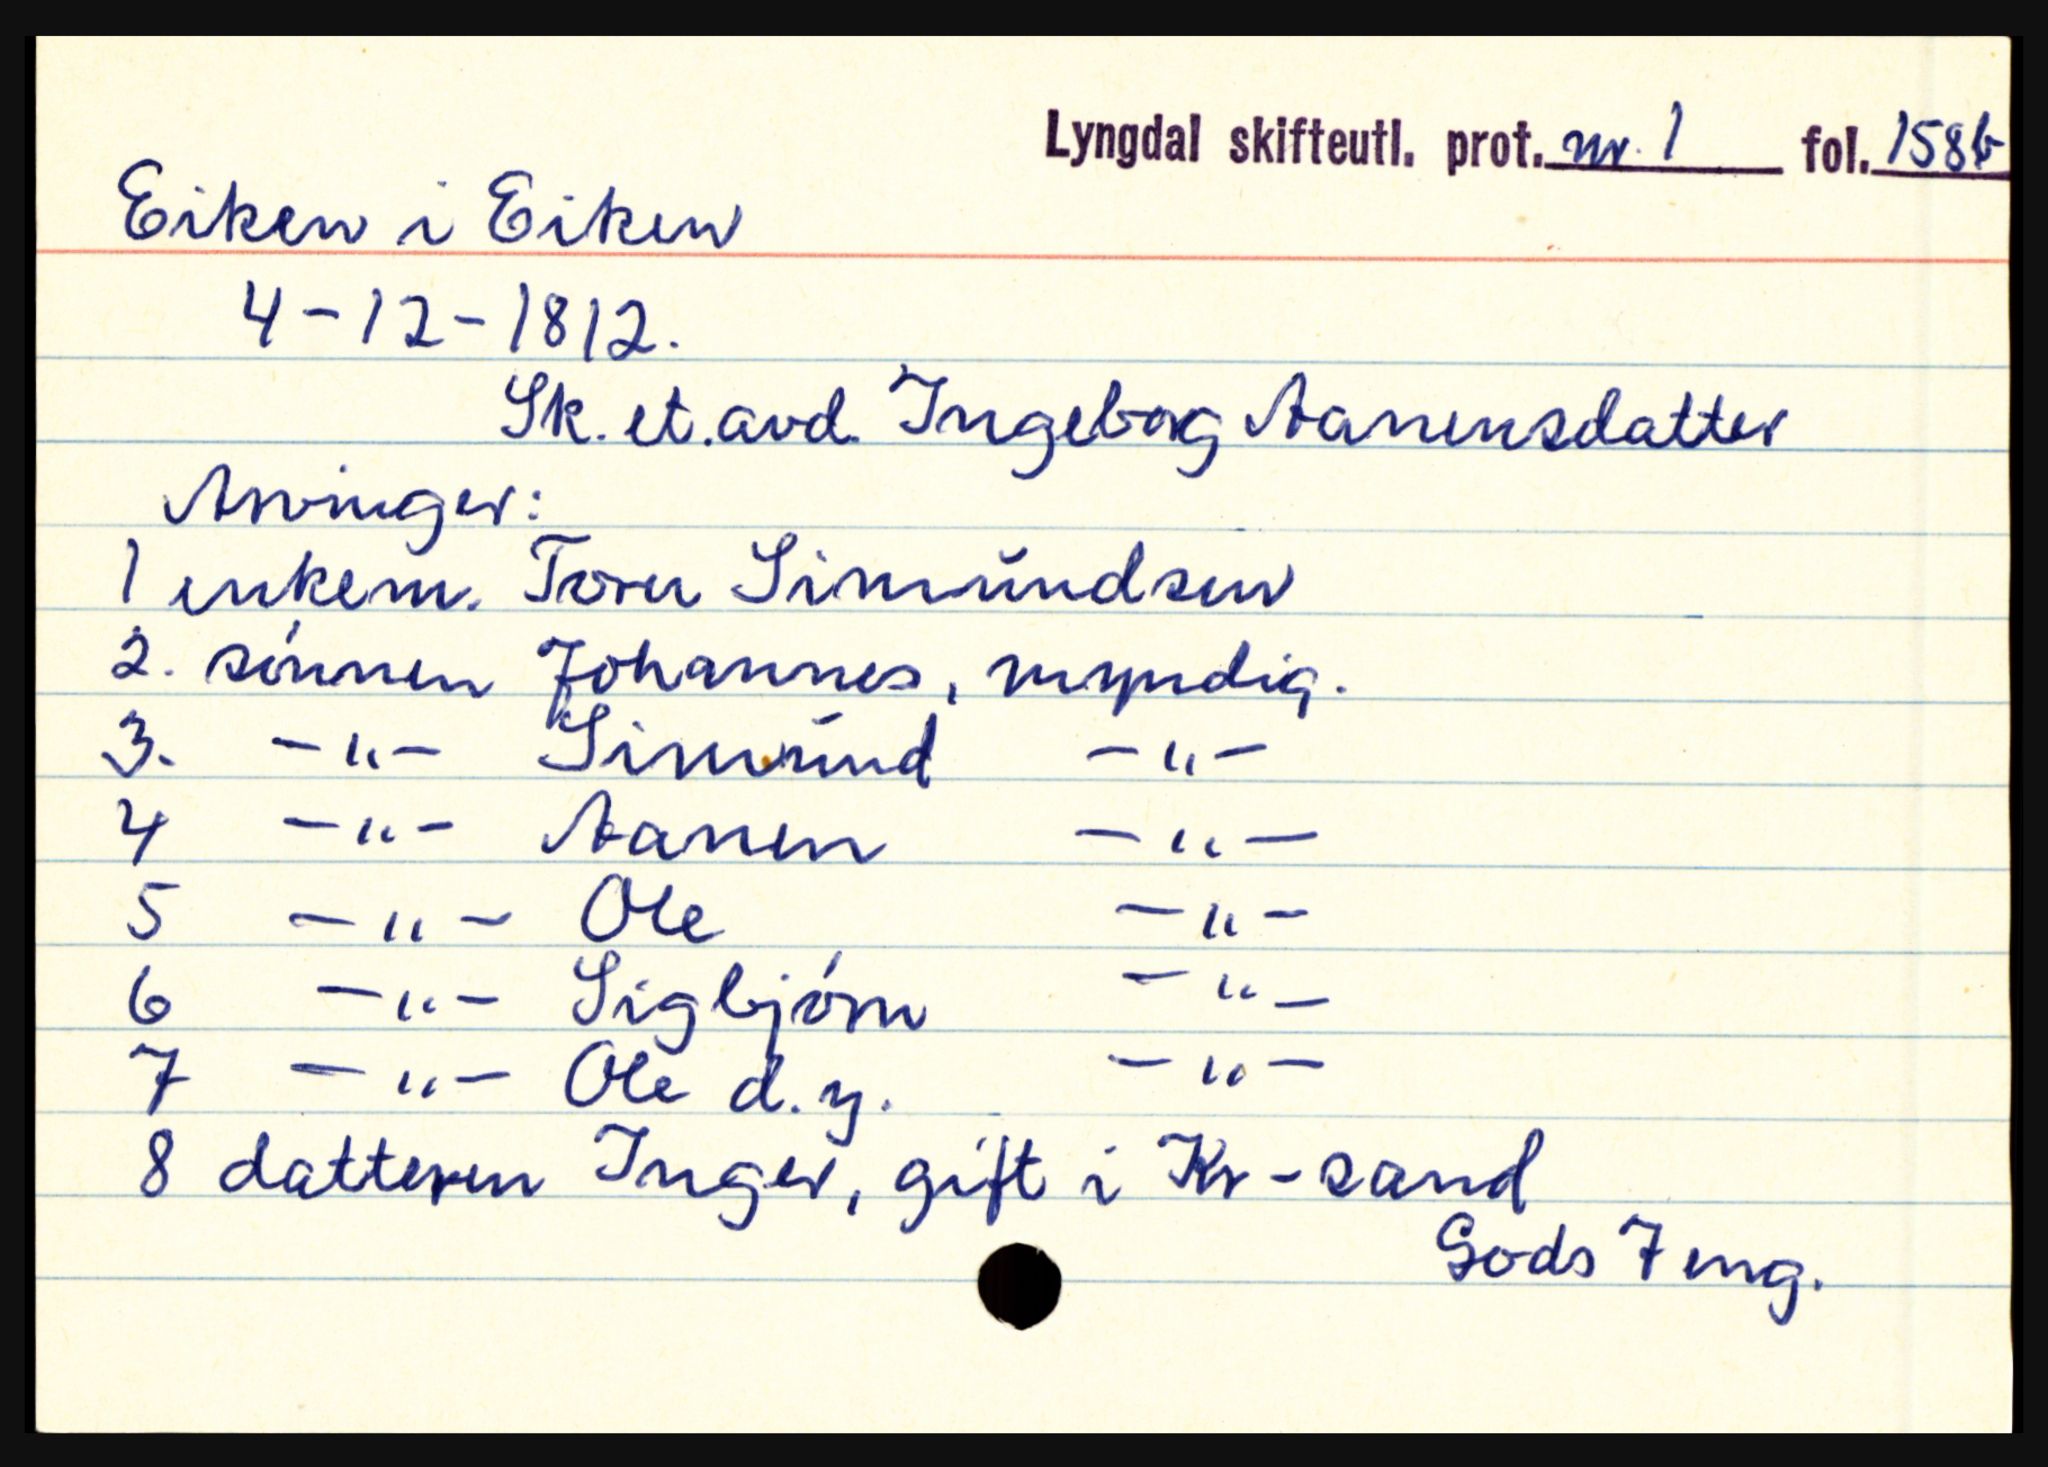 Lyngdal skifteutl. prot. nr. 1 fol. 158b
Eiken i Eiken
4-12-1812.
Sk. et. avd. Ingeborg Aanensdatter
Arvinger:
1 enkem. Tore Simundsen
2. sónnen Johannes, myndig.
3. -"- Simund -"-
4 -"- Aanen -"-
5 -"- Ole -"-
6 -"- Sigbjórn -"-
7 -"- Ole d.y. -"-
8 datteren Inger, gift i Kr-sand
Gods 7 eng.